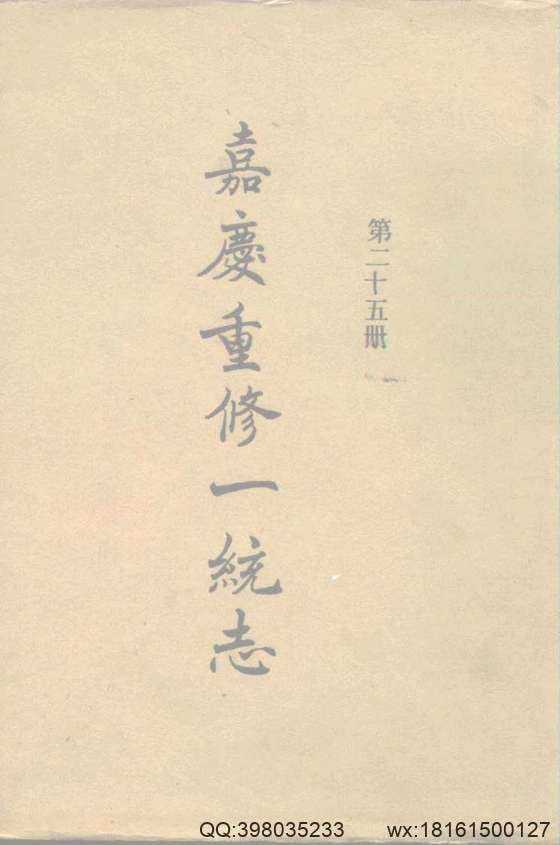 第二十五册
嘉慶重修一統志
QQ:398035233 wx:18161500127